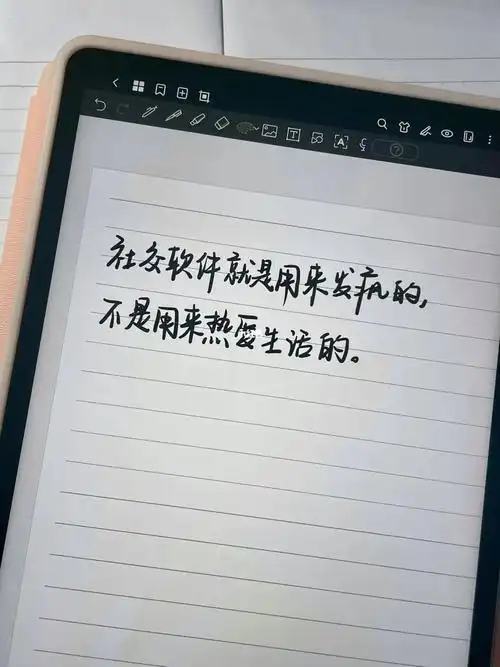 社交软件就是用来发疯的，
不是用来热爱生活的。